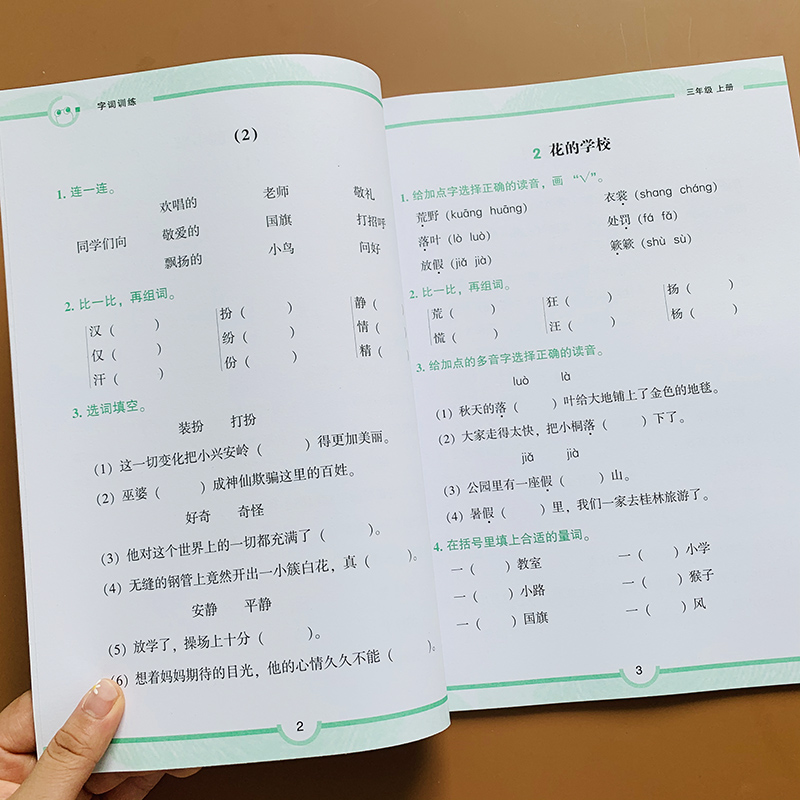 字词训练
(2)
1. 连一连。
欢唱的 老师 敬礼
同学们向 敬爱的 国旗 打招呼
飘扬的 小鸟 问好
2. 比一比，再组词。
汉（ ） 扮（ ） 静（
仅（ ） 纷（ ） 情（
汗（ ） 份（ ） 精（
3. 选词填空。
装扮 打扮
(1) 这一切变化把小兴安岭（ ）得更加美丽。
(2) 巫婆（ ）成神仙欺骗这里的百姓。
好奇 奇怪
(3) 他对这个世界上的一切都充满了（ ）。
(4) 无缝的钢管上竟然开出一小簇白花，真（ ）。
安静 平静
(5) 放学了，操场上十分（ ）。
(6) 想着妈妈期待的目光，他的心情久久不能（ ）。
2
三年级 上册
2 花的学校
1. 给加点字选择正确的读音，画“√”。
荒野（kuāng huāng） 衣裳（shang cháng）
落叶（lò luò） 处罚（fá fǎ）
放假（jiǎ jià） 簌簌（shù sù）
2. 比一比，再组词。
荒（ ） 狂（ ） 扬（ ）
慌（ ） 汪（ ） 杨（ ）
3. 给加点的多音字选择正确的读音。
luò là
(1) 秋天的落（ ）叶给大地铺上了金色的地毯。
(2) 大家走得太快，把小桐落（ ）下了。
jiǎ jià
(3) 公园里有一座假（ ）山。
(4) 暑假（ ）里，我们一家去桂林旅游了。
4. 在括号里填上合适的量词。
一（ ）教室 一（ ）小学
一（ ）小路 一（ ）猴子
一（ ）国旗 一（ ）风
3